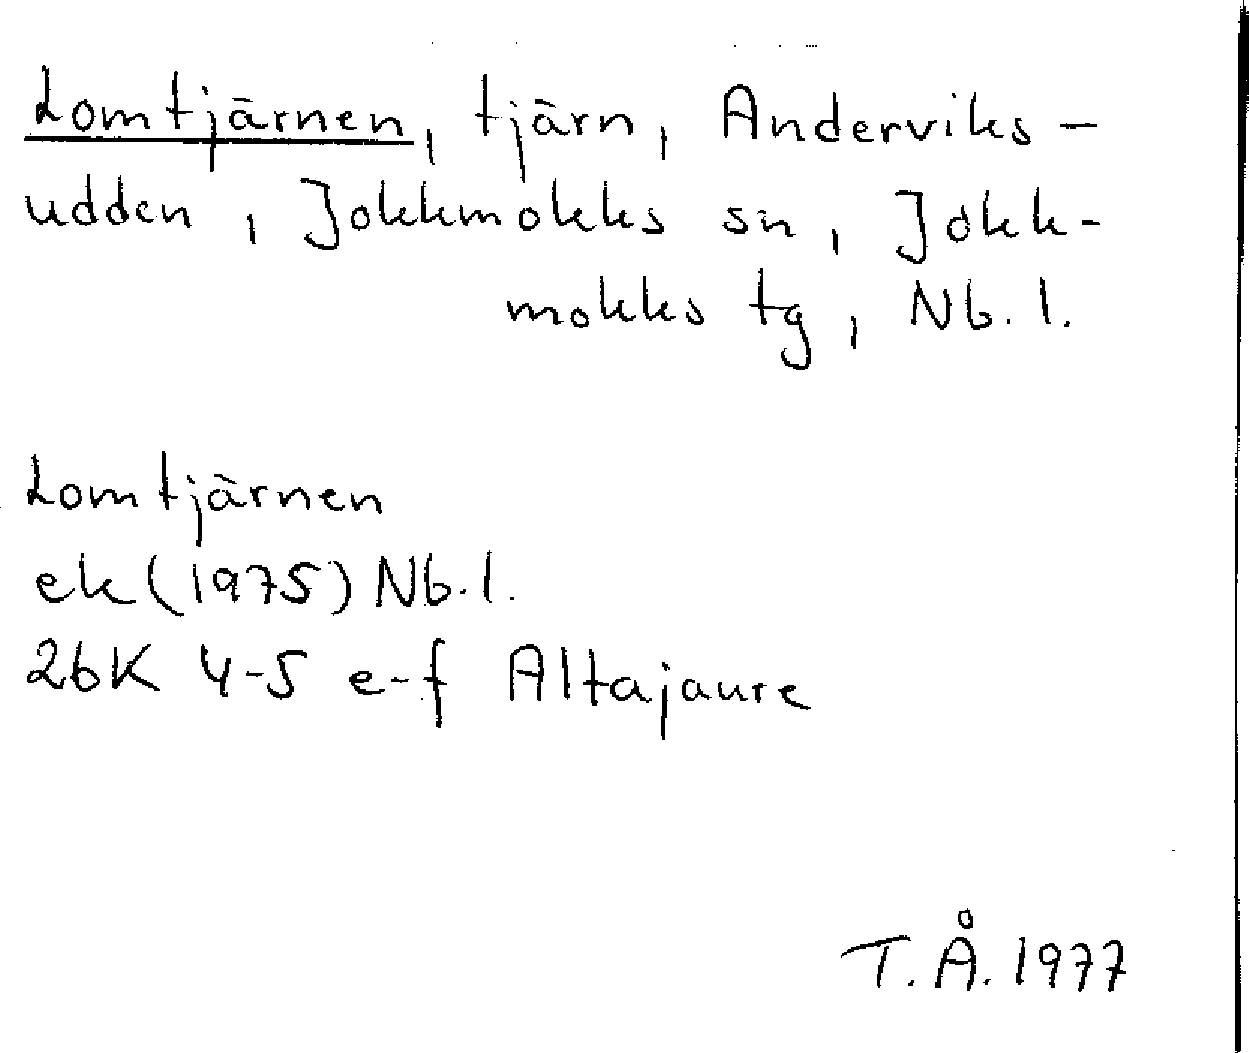 Lomtjärnen, tjärn, Anderviks-
udden, Jokkmokks sn, Jokk-
mokks tg, Nb. l.
Lomtjärnen
ek (1975) Nb. l.
26K 4-5 e-f Altajaure
T. Å. 1977